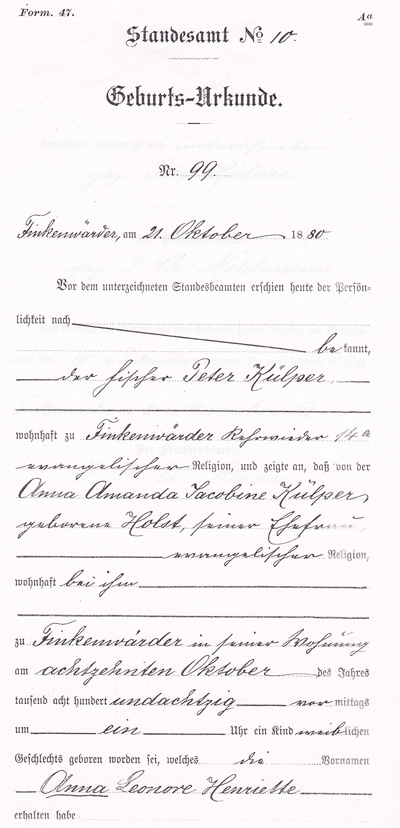 Form. 47.
Aa
Standesamt No 10.
Geburts-Urkunde.
Nr. 99.
Finkenwärder, am 21. Oktober 1880
Vor dem unterzeichneten Standesbeamten erschien heute der Persön-
lichkeit nach
bekannt,
der Fischer Peter Külper,
wohnhaft zu Finkenwärder Kehrwieder 14a
evangelischer Religion, und zeigte an, daß von der
Anna Amanda Jacobine Külper,
geborene Holst, seiner Ehefrau,
evangelischer Religion,
wohnhaft bei ihm
zu Finkenwärder in seiner Wohnung
am achtzehnten Oktober des Jahres
tausend acht hundert undachtzig vormittags
um ein Uhr ein Kind weiblichen
Geschlechts geboren worden sei, welches die Vornamen
Anna Leonore Henriette
erhalten habe